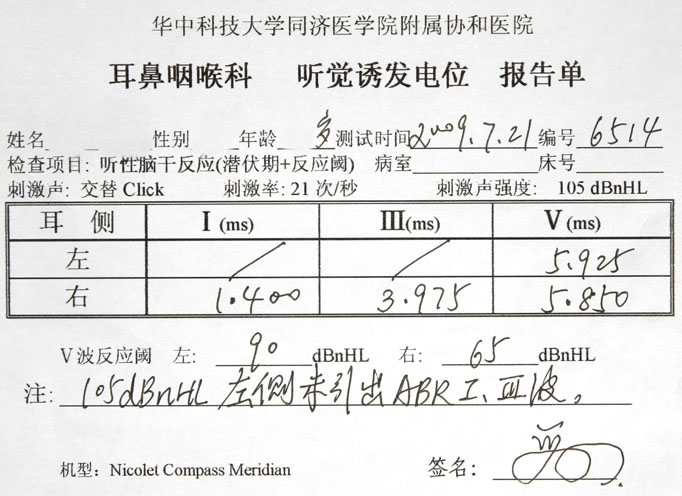 华中科技大学同济医学院附属协和医院
耳鼻咽喉科 听觉诱发电位 报告单
姓名 性别 年龄 岁 测试时间 2009.7.21 编号 6514
检查项目: 听性脑干反应(潜伏期+反应阈) 病室 床号
刺激声: 交替 Click 刺激率: 21 次/秒 刺激声强度: 105 dBnHL
耳 侧 I (ms) III(ms) V (ms)
左 / / 5.925
右 1.400 3.975 5.850
V 波反应阈 左: 90 dBnHL 右: 65 dBnHL
注: 105dBnHL 左侧未引出ABR I、III波。
机型: Nicolet Compass Meridian 签名: